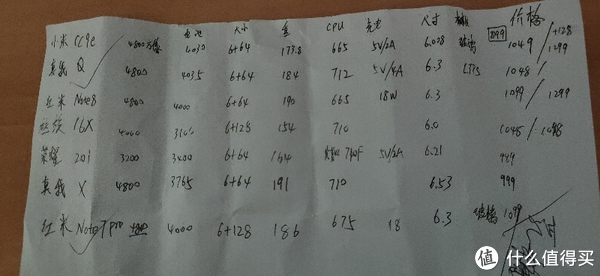 电池 大小 重 CPU 充电 尺寸 价格
小米 CC9e 4800万 4030 6+64 173.8 665 5V/2A 6.088 899 1049/1299 +128
真我 Q 4800 4035 6+64 184 712 5V/4A 6.3 LTPS 1048/
红米 Note8 4800 4000 6+64 190 665 18W 6.3 1099/1299
魅族 16X 4000 3100 6+128 154 710 6.0 1048/1098
荣耀 20i 3200 3400 6+64 164 麒麟 710F 5V/2A 6.21 949
真我 X 4800 3765 6+64 191 710 6.53 999
红米 Note7 pro 4000 6+128 186 675 18 6.3 1099
值 什么值得买